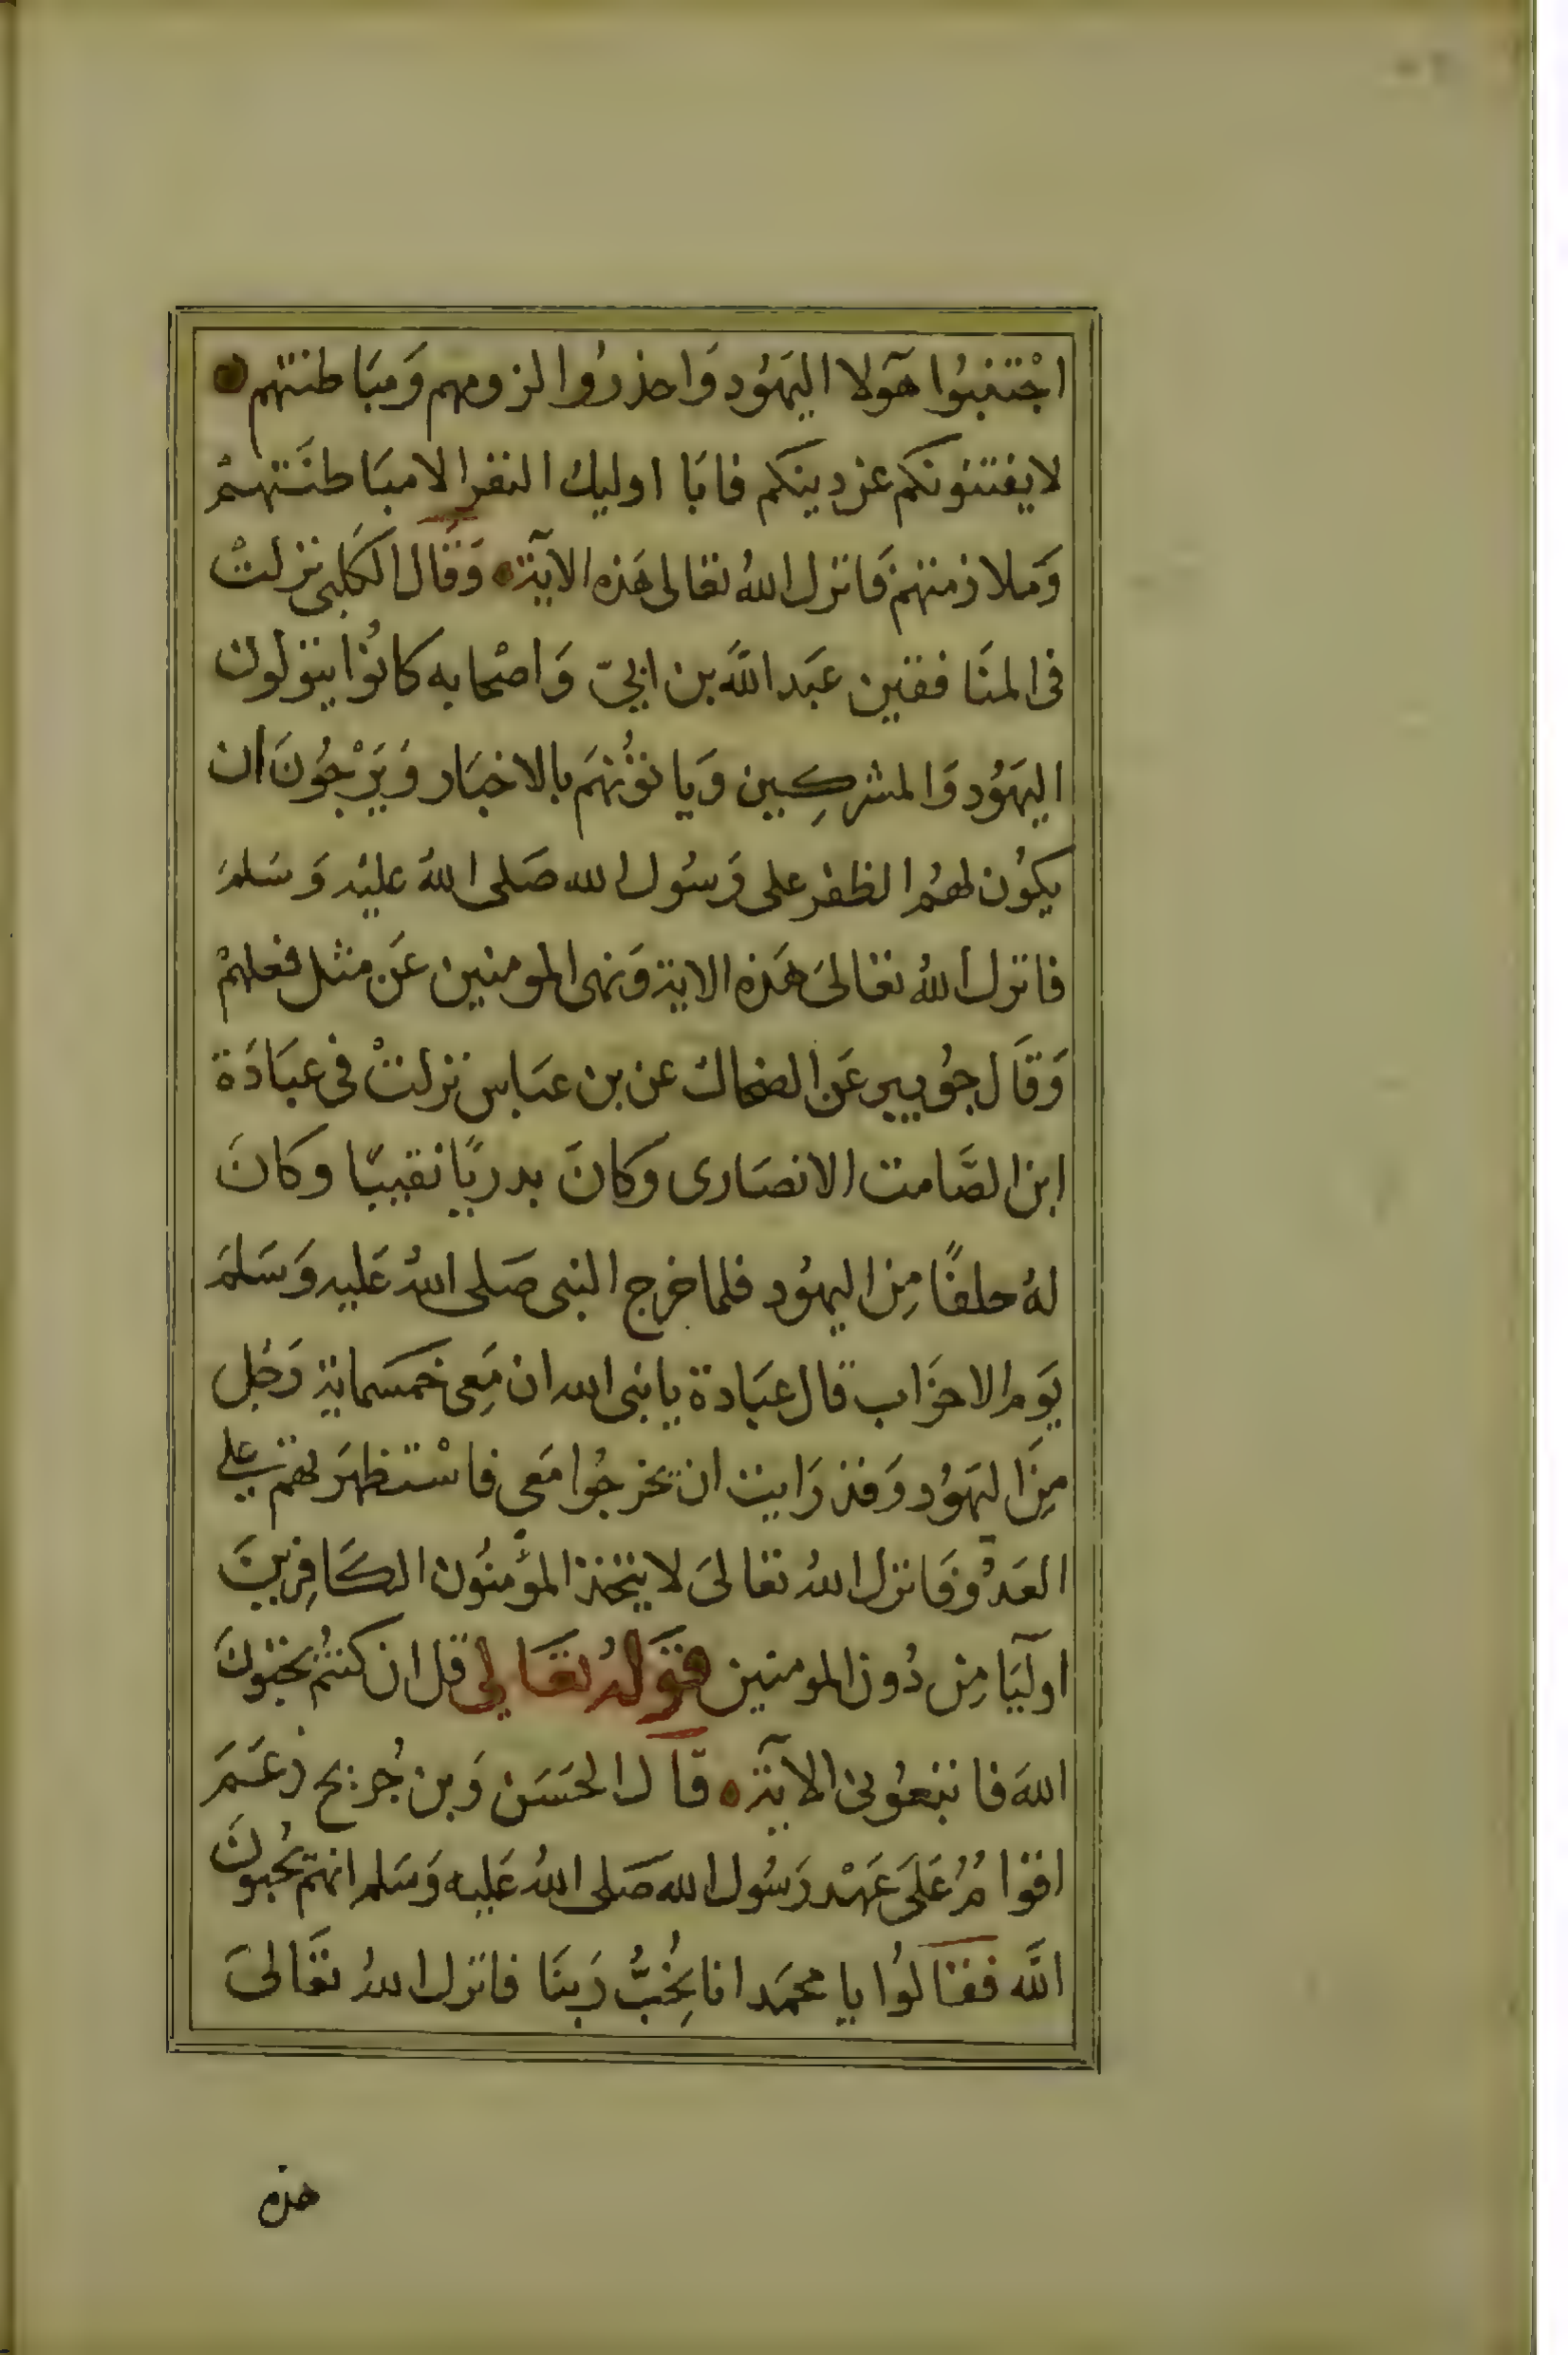 اجْتنبُوا هَٓولا اليَهُود وَاحذرُوا لزومهم وَمبَاطنتهم
لايفتنونكم عن دينكم فابَا اوليك النفر الا مبَاطنَتهمْ
وَملازمتهم فَانزل اللهُ تعالى هَذه الآية وَقَال الكَلبى نزلتْ
فى المنَافقين عَبَد اللَّه بن ابىّ وَاصْحابه كانُوا يتولون
اليَهُود وَالمشركِين وَياتوُنهَم بالاخبَار وَيَرْجُونَ ان
يكوُن لهُم الظفر على رَسُول الله صَلى اللهُ عليْه وَسَلمَ
فانزل اللهُ تعَالىَ هَذه الاية وَنهى المومنين عَن مثل فعلهمْ
وَقَال جوُيبر عَن الضحاك عن بن عبَاس نزلتْ فى عبَادَة
ابن الصَّامت الانصَارى وَكانَ بدريًا نقيبًا وكانَ
لهُ حلفًا مِن اليهُود فلما خرج النبى صَلى اللهُ عَليه وَسَلمَ
يَوم الاحزَاب قال عبَادة يا نبى الله ان مَعِى خمسماية رَجُل
مِنَ اليَهُود وَقد رَايت ان يخرجُوا مَعى فاسْتظهرَ بهم على
العَدُوّ فَانزل اللهُ تعَالىَ لا يتخذ المؤمنُون الكَافِرينَ
اوليَآ مِن دُون المومنين قَولهُ تعَالى قل ان كنتُم تحبّونَ
اللهَ فاتبعُونى الآية قَال الحَسَن وَبن جُريج زعَمَ
اقوامُ عَلىَ عَهْد رَسُول الله صَلى اللهُ عَليه وَسَلم انهم يُحبونَ
اللَّه فقَالوُا يا محمَد انا نُحِبُّ رَبنَا فانزل اللهُ تعَالىَ
هذه